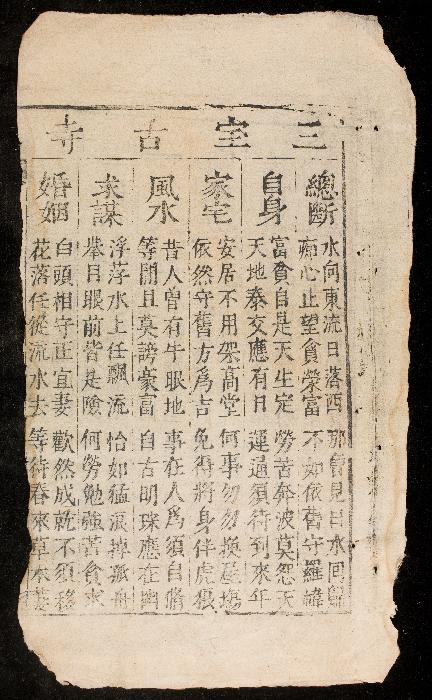 三宝古寺
總斷
水向東流日落西 那曾見日水回歸
痴心止望貪榮富 不如依舊守羅幃
自身
富貧自是天生定 勞苦奔波莫怨天
天地泰交應有日 運通須待到來年
家宅
安居不用架高堂 何事勿勿換產塲
依然守舊方爲吉 免得將身伴虎狼
風水
昔人曽有牛眼地 事在人爲須自脩
等閒且莫誇豪富 自古明珠應在幽
求謀
浮萍水上任飄流 恰如猛浪掉孤舟
舉目眼前皆是險 何勞勉強苦貪求
婚姻
白頭相守正宜妻 歡然成就不須移
花落任從流水去 等待春來草木萋